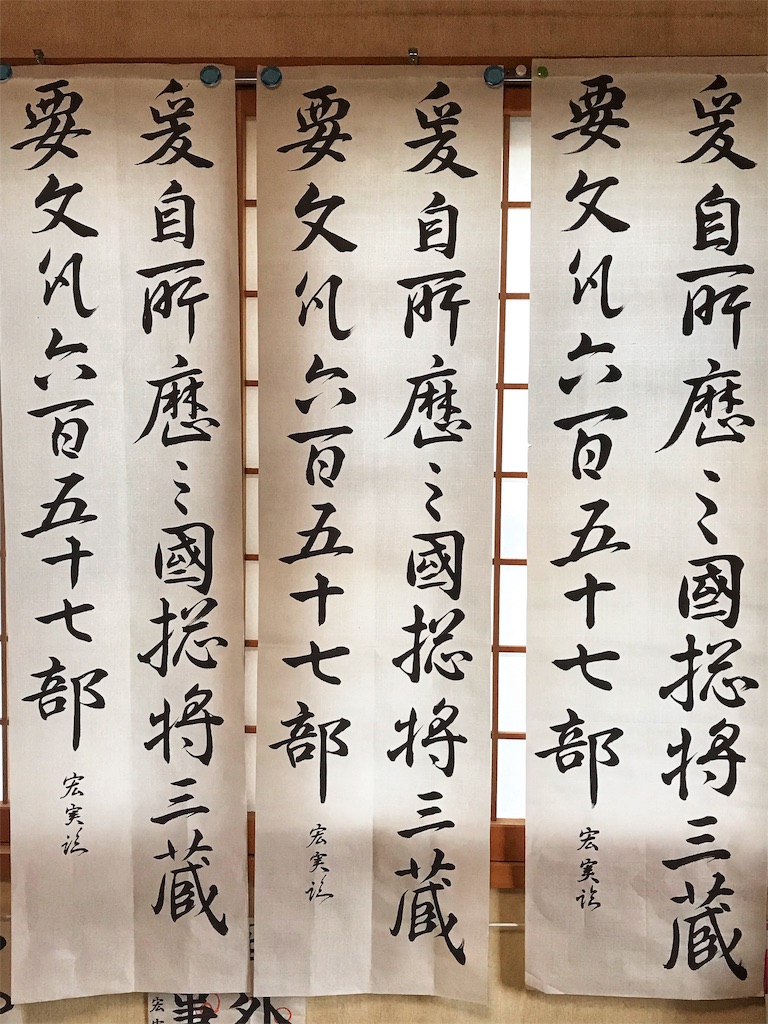 爰自所歷之國揔將三藏
要文凡六百五十七部
宏実臨
爰自所歷之國揔將三藏
要文凡六百五十七部
宏実臨
爰自所歷之國揔將三藏
要文凡六百五十七部
宏実臨